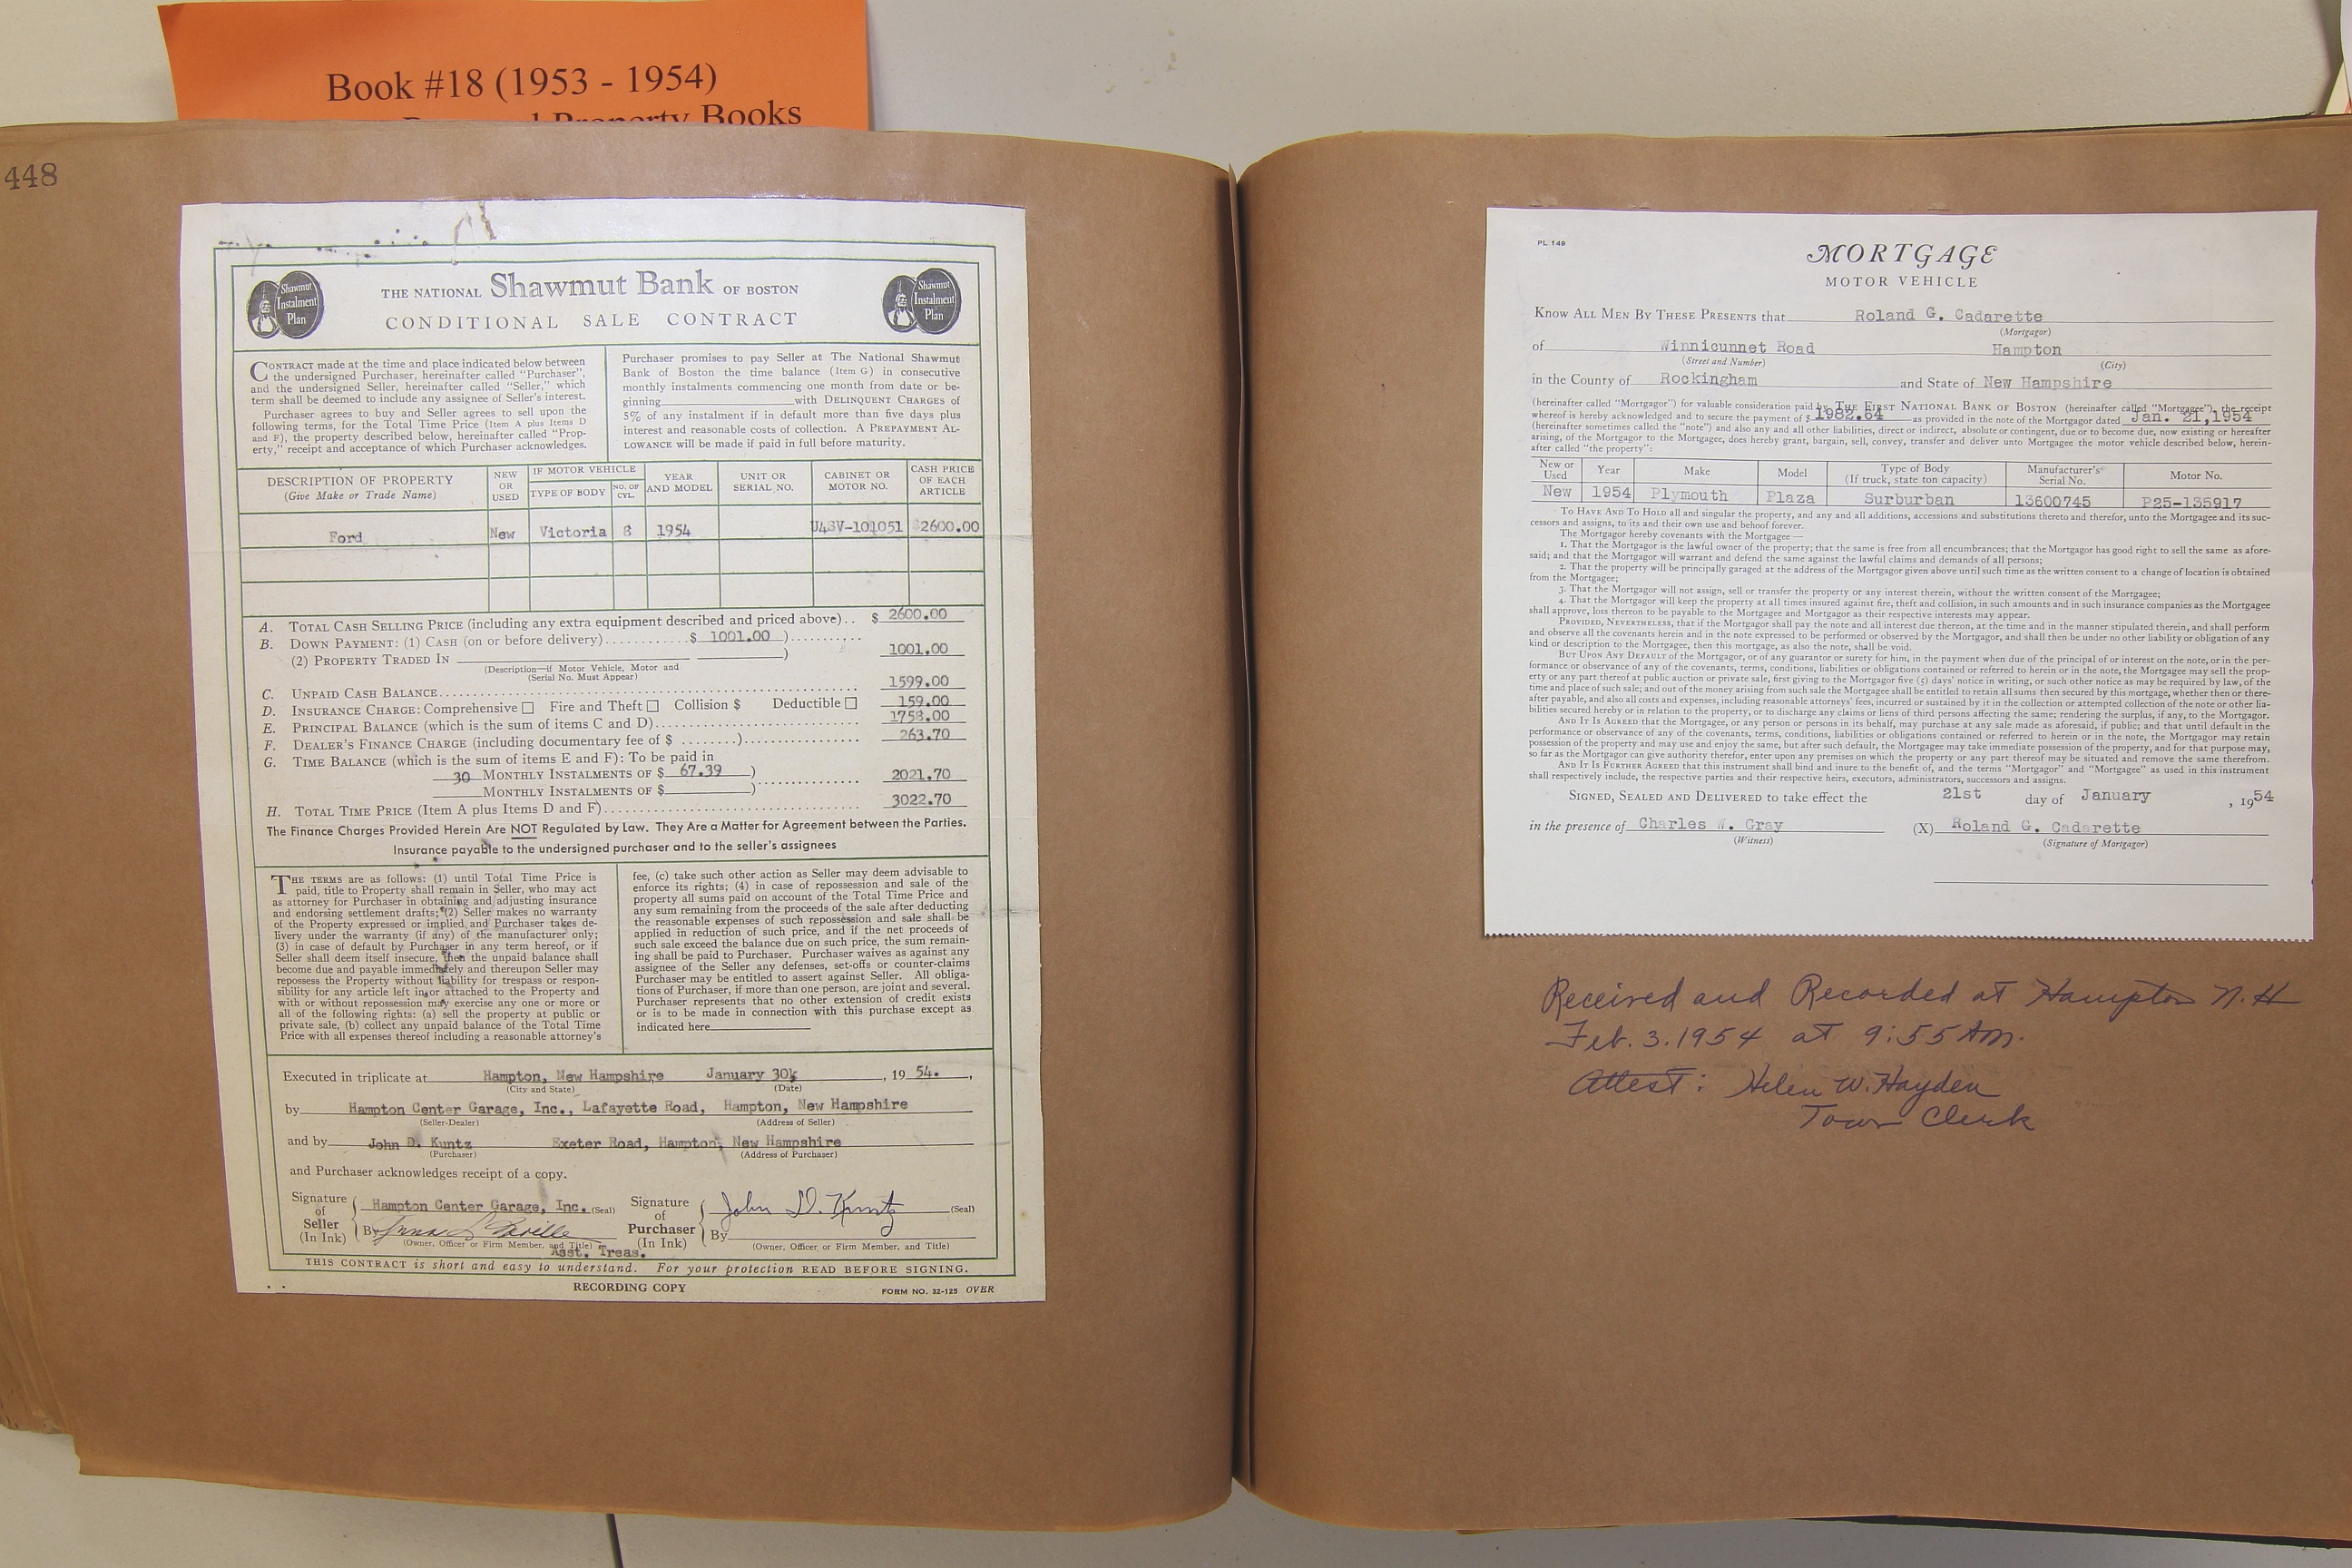 Book #18 (1953 - 1954)
Property Books
448
Shawmut
Instalment
Plan
THE NATIONAL Shawmut Bank OF BOSTON
CONDITIONAL SALE CONTRACT
Shawmut
Instalment
Plan
CONTRACT made at the time and place indicated below between
the undersigned Purchaser, hereinafter called "Purchaser",
and the undersigned Seller, hereinafter called "Seller," which
term shall be deemed to include any assignee of Seller's interest.
Purchaser agrees to buy and Seller agrees to sell upon the
following terms, for the Total Time Price (Item A plus Items D
and F), the property described below, hereinafter called "Prop-
erty," receipt and acceptance of which Purchaser acknowledges.
Purchaser promises to pay Seller at The National Shawmut
Bank of Boston the time balance (Item G) in consecutive
monthly instalments commencing one month from date or be-
ginning with DELINQUENT CHARGES of
5% of any instalment if in default more than five days plus
interest and reasonable costs of collection. A PREPAYMENT AL-
LOWANCE will be made if paid in full before maturity.
DESCRIPTION OF PROPERTY
(Give Make or Trade Name)
NEW
OR
USED
IF MOTOR VEHICLE
TYPE OF BODY
NO. OF
CYL.
YEAR
AND MODEL
UNIT OR
SERIAL NO.
CABINET OR
MOTOR NO.
CASH PRICE
OF EACH
ARTICLE
Ford New Victoria 8 1954 U4SV-101051 $2600.00
A. TOTAL CASH SELLING PRICE (including any extra equipment described and priced above).. $ 2600.00
B. DOWN PAYMENT: (1) CASH (on or before delivery)........... $ 1001.00 )..........
(2) PROPERTY TRADED IN ) 1001.00
(Description—if Motor Vehicle, Motor and
Serial No. Must Appear)
C. UNPAID CASH BALANCE........ 1599.00
D. INSURANCE CHARGE: Comprehensive □ Fire and Theft □ Collision $ Deductible □ 159.00
E. PRINCIPAL BALANCE (which is the sum of items C and D)........ 1758.00
F. DEALER'S FINANCE CHARGE (including documentary fee of $ ........)........ 263.70
G. TIME BALANCE (which is the sum of items E and F): To be paid in
30 MONTHLY INSTALMENTS OF $ 67.39 )........ 2021.70
MONTHLY INSTALMENTS OF $ )
H. TOTAL TIME PRICE (Item A plus Items D and F)........ 3022.70
The Finance Charges Provided Herein Are NOT Regulated by Law. They Are a Matter for Agreement between the Parties.
Insurance payable to the undersigned purchaser and to the seller's assignees
THE TERMS are as follows: (1) until Total Time Price is
paid, title to Property shall remain in Seller, who may act
as attorney for Purchaser in obtaining and adjusting insurance
and endorsing settlement drafts; (2) Seller makes no warranty
of the Property expressed or implied and Purchaser takes de-
livery under the warranty (if any) of the manufacturer only;
(3) in case of default by Purchaser in any term hereof, or if
Seller shall deem itself insecure, then the unpaid balance shall
become due and payable immediately and thereupon Seller may
repossess the Property without liability for trespass or respon-
sibility for any article left in or attached to the Property and
with or without repossession may exercise any one or more or
all of the following rights: (a) sell the property at public or
private sale, (b) collect any unpaid balance of the Total Time
Price with all expenses thereof including a reasonable attorney's
fee, (c) take such other action as Seller may deem advisable to
enforce its rights; (4) in case of repossession and sale of the
property all sums paid on account of the Total Time Price and
any sum remaining from the proceeds of the sale after deducting
the reasonable expenses of such repossession and sale shall be
applied in reduction of such price, and if the net proceeds of
such sale exceed the balance due on such price, the sum remain-
ing shall be paid to Purchaser. Purchaser waives as against any
assignee of the Seller any defenses, set-offs or counter-claims
Purchaser may be entitled to assert against Seller. All obliga-
tions of Purchaser, if more than one person, are joint and several.
Purchaser represents that no other extension of credit exists
or is to be made in connection with this purchase except as
indicated here
Executed in triplicate at Hampton, New Hampshire January 30, 19 54.,
(City and State) (Date)
by Hampton Center Garage, Inc., Lafayette Road, Hampton, New Hampshire
(Seller-Dealer) (Address of Seller)
and by John D. Kuntz Exeter Road, Hampton, New Hampshire
(Purchaser) (Address of Purchaser)
and Purchaser acknowledges receipt of a copy.
Signature
of
Seller
(In Ink)
Hampton Center Garage, Inc. (Seal)
By
(Owner, Officer or Firm Member, and Title)
Asst. Treas.
Signature
of
Purchaser
(In Ink)
John D. Kuntz (Seal)
By
(Owner, Officer or Firm Member, and Title)
THIS CONTRACT is short and easy to understand. For your protection READ BEFORE SIGNING.
RECORDING COPY
FORM NO. 32-125 OVER
PL 149
MORTGAGE
MOTOR VEHICLE
Know ALL MEN BY THESE PRESENTS that Roland G. Cadarette
(Mortgagor)
of Winnicunnet Road Hampton
(Street and Number) (City)
in the County of Rockingham and State of New Hampshire
(hereinafter called "Mortgagor") for valuable consideration paid by THE FIRST NATIONAL BANK OF BOSTON (hereinafter called "Mortgagee"), the receipt
whereof is hereby acknowledged and to secure the payment of $ 1982.64 as provided in the note of the Mortgagor dated Jan. 21, 1954
(hereinafter sometimes called the "note") and also any and all other liabilities, direct or indirect, absolute or contingent, due or to become due, now existing or hereafter
arising, of the Mortgagor to the Mortgagee, does hereby grant, bargain, sell, convey, transfer and deliver unto Mortgagee the motor vehicle described below, herein-
after called "the property":
New or
Used
Year
Make
Model
Type of Body
(If truck, state ton capacity)
Manufacturer's
Serial No.
Motor No.
New 1954 Plymouth Plaza Surburban 13600745 P25-135917
To HAVE AND TO HOLD all and singular the property, and any and all additions, accessions and substitutions thereto and therefor, unto the Mortgagee and its suc-
cessors and assigns, to its and their own use and behoof forever.
The Mortgagor hereby covenants with the Mortgagee —
1. That the Mortgagor is the lawful owner of the property; that the same is free from all encumbrances; that the Mortgagor has good right to sell the same as afore-
said; and that the Mortgagor will warrant and defend the same against the lawful claims and demands of all persons;
2. That the property will be principally garaged at the address of the Mortgagor given above until such time as the written consent to a change of location is obtained
from the Mortgagee;
3. That the Mortgagor will not assign, sell or transfer the property or any interest therein, without the written consent of the Mortgagee;
4. That the Mortgagor will keep the property at all times insured against fire, theft and collision, in such amounts and in such insurance companies as the Mortgagee
shall approve, loss thereon to be payable to the Mortgagee and Mortgagor as their respective interests may appear.
PROVIDED, NEVERTHELESS, that if the Mortgagor shall pay the note and all interest due thereon, at the time and in the manner stipulated therein, and shall perform
and observe all the covenants herein and in the note expressed to be performed or observed by the Mortgagor, and shall then be under no other liability or obligation of any
kind or description to the Mortgagee, then this mortgage, as also the note, shall be void.
BUT UPON ANY DEFAULT of the Mortgagor, or of any guarantor or surety for him, in the payment when due of the principal of or interest on the note, or in the per-
formance or observance of any of the covenants, terms, conditions, liabilities or obligations contained or referred to herein or in the note, the Mortgagee may sell the prop-
erty or any part thereof at public auction or private sale, first giving to the Mortgagor five (5) days' notice in writing, or such other notice as may be required by law, of the
time and place of such sale; and out of the money arising from such sale the Mortgagee shall be entitled to retain all sums then secured by this mortgage, whether then or there-
after payable, and also all costs and expenses, including reasonable attorneys' fees, incurred or sustained by it in the collection or attempted collection of the note or other lia-
bilities secured hereby or in relation to the property, or to discharge any claims or liens of third persons affecting the same; rendering the surplus, if any, to the Mortgagor.
AND IT IS AGREED that the Mortgagee, or any person or persons in its behalf, may purchase at any sale made as aforesaid, if public; and that until default in the
performance or observance of any of the covenants, terms, conditions, liabilities or obligations contained or referred to herein or in the note, the Mortgagor may retain
possession of the property and may use and enjoy the same, but after such default, the Mortgagee may take immediate possession of the property, and for that purpose may,
so far as the Mortgagor can give authority therefor, enter upon any premises on which the property or any part thereof may be situated and remove the same therefrom.
AND IT IS FURTHER AGREED that this instrument shall bind and inure to the benefit of, and the terms "Mortgagor" and "Mortgagee" as used in this instrument
shall respectively include, the respective parties and their respective heirs, executors, administrators, successors and assigns.
SIGNED, SEALED AND DELIVERED to take effect the 21st day of January , 1954
in the presence of Charles W. Gray (X) Roland G. Cadarette
(Witness) (Signature of Mortgagor)
Received and Recorded at Hampton N.H
Feb. 3. 1954 at 9:55 AM.
Attest: Helen W. Hayden
Town Clerk